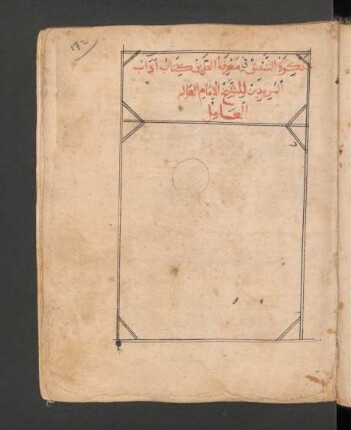 ١٧٤
تذكرة النفس في معرفة القرين كتاب آداب
المريدين للشيخ الإمام العالم
العامل